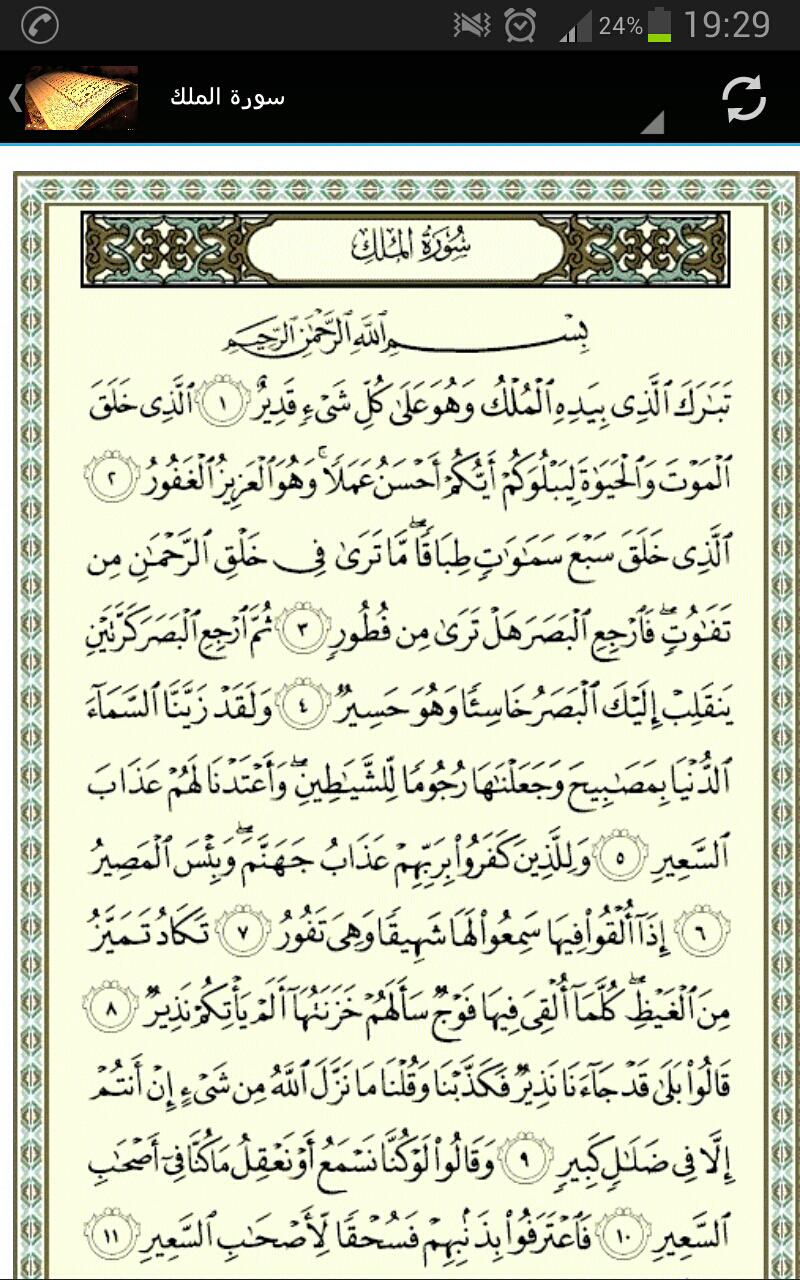 24% 19:29
سورة الملك
سُورَةُ المُلْكِ
بِسْمِ ٱللَّهِ ٱلرَّحْمَٰنِ ٱلرَّحِيمِ
تَبَٰرَكَ ٱلَّذِى بِيَدِهِ ٱلْمُلْكُ وَهُوَ عَلَىٰ كُلِّ شَىْءٍ قَدِيرٌ ١ ٱلَّذِى خَلَقَ
ٱلْمَوْتَ وَٱلْحَيَوٰةَ لِيَبْلُوَكُمْ أَيُّكُمْ أَحْسَنُ عَمَلًا ۚ وَهُوَ ٱلْعَزِيزُ ٱلْغَفُورُ ٢
ٱلَّذِى خَلَقَ سَبْعَ سَمَٰوَٰتٍ طِبَاقًا ۖ مَّا تَرَىٰ فِى خَلْقِ ٱلرَّحْمَٰنِ مِن
تَفَٰوُتٍ ۖ فَٱرْجِعِ ٱلْبَصَرَ هَلْ تَرَىٰ مِن فُطُورٍ ٣ ثُمَّ ٱرْجِعِ ٱلْبَصَرَ كَرَّتَيْنِ
يَنقَلِبْ إِلَيْكَ ٱلْبَصَرُ خَاسِئًا وَهُوَ حَسِيرٌ ٤ وَلَقَدْ زَيَّنَّا ٱلسَّمَآءَ
ٱلدُّنْيَا بِمَصَٰبِيحَ وَجَعَلْنَٰهَا رُجُومًا لِّلشَّيَٰطِينِ ۖ وَأَعْتَدْنَا لَهُمْ عَذَابَ
ٱلسَّعِيرِ ٥ وَلِلَّذِينَ كَفَرُوا۟ بِرَبِّهِمْ عَذَابُ جَهَنَّمَ ۖ وَبِئْسَ ٱلْمَصِيرُ
٦ إِذَآ أُلْقُوا۟ فِيهَا سَمِعُوا۟ لَهَا شَهِيقًا وَهِىَ تَفُورُ ٧ تَكَادُ تَمَيَّزُ
مِنَ ٱلْغَيْظِ ۖ كُلَّمَآ أُلْقِىَ فِيهَا فَوْجٌ سَأَلَهُمْ خَزَنَتُهَآ أَلَمْ يَأْتِكُمْ نَذِيرٌ ٨
قَالُوا۟ بَلَىٰ قَدْ جَآءَنَا نَذِيرٌ فَكَذَّبْنَا وَقُلْنَا مَا نَزَّلَ ٱللَّهُ مِن شَىْءٍ إِنْ أَنتُمْ
إِلَّا فِى ضَلَٰلٍ كَبِيرٍ ٩ وَقَالُوا۟ لَوْ كُنَّا نَسْمَعُ أَوْ نَعْقِلُ مَا كُنَّا فِىٓ أَصْحَٰبِ
ٱلسَّعِيرِ ١٠ فَٱعْتَرَفُوا۟ بِذَنۢبِهِمْ فَسُحْقًا لِّأَصْحَٰبِ ٱلسَّعِيرِ ١١